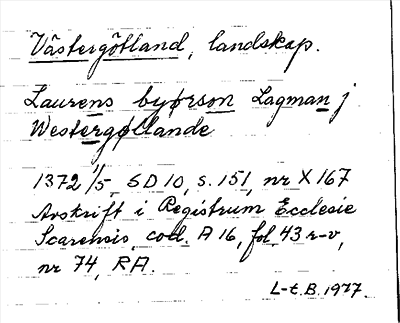 Västergötland, landskap.
Laurens byørson Lagman j
Westergøllande
1372 1/5, SD 10, s. 151, nr X 167
Avskrift i Registrum Ecclesie
Scarensis, cod. A 16, fol. 43 r-v,
nr 74, RA.
L-t. B. 1977.